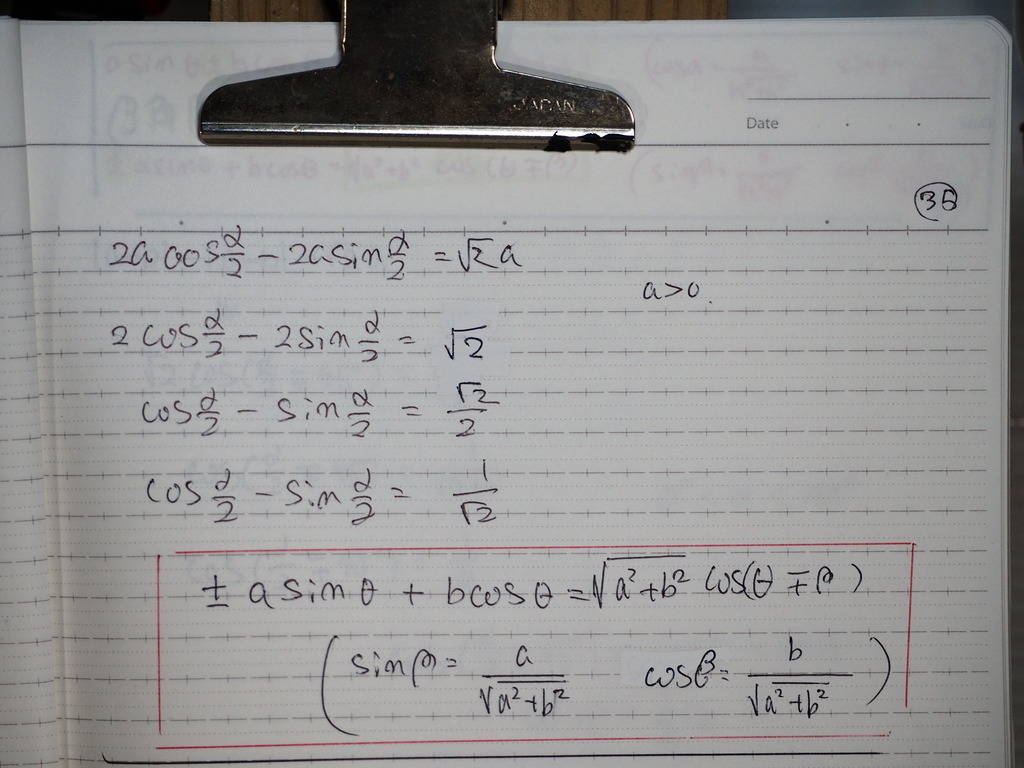 JAPAN
Date
36
2a cos α/2 − 2a sin α/2 = √2 a
a>0.
2 cos α/2 − 2 sin α/2 = √2
cos α/2 − sin α/2 = √2/2
cos α/2 − sin α/2 = 1/√2
± a sin θ + b cos θ = √(a²+b²) cos(θ ∓ β)
( sin β = a/√(a²+b²) cos β = b/√(a²+b²) )